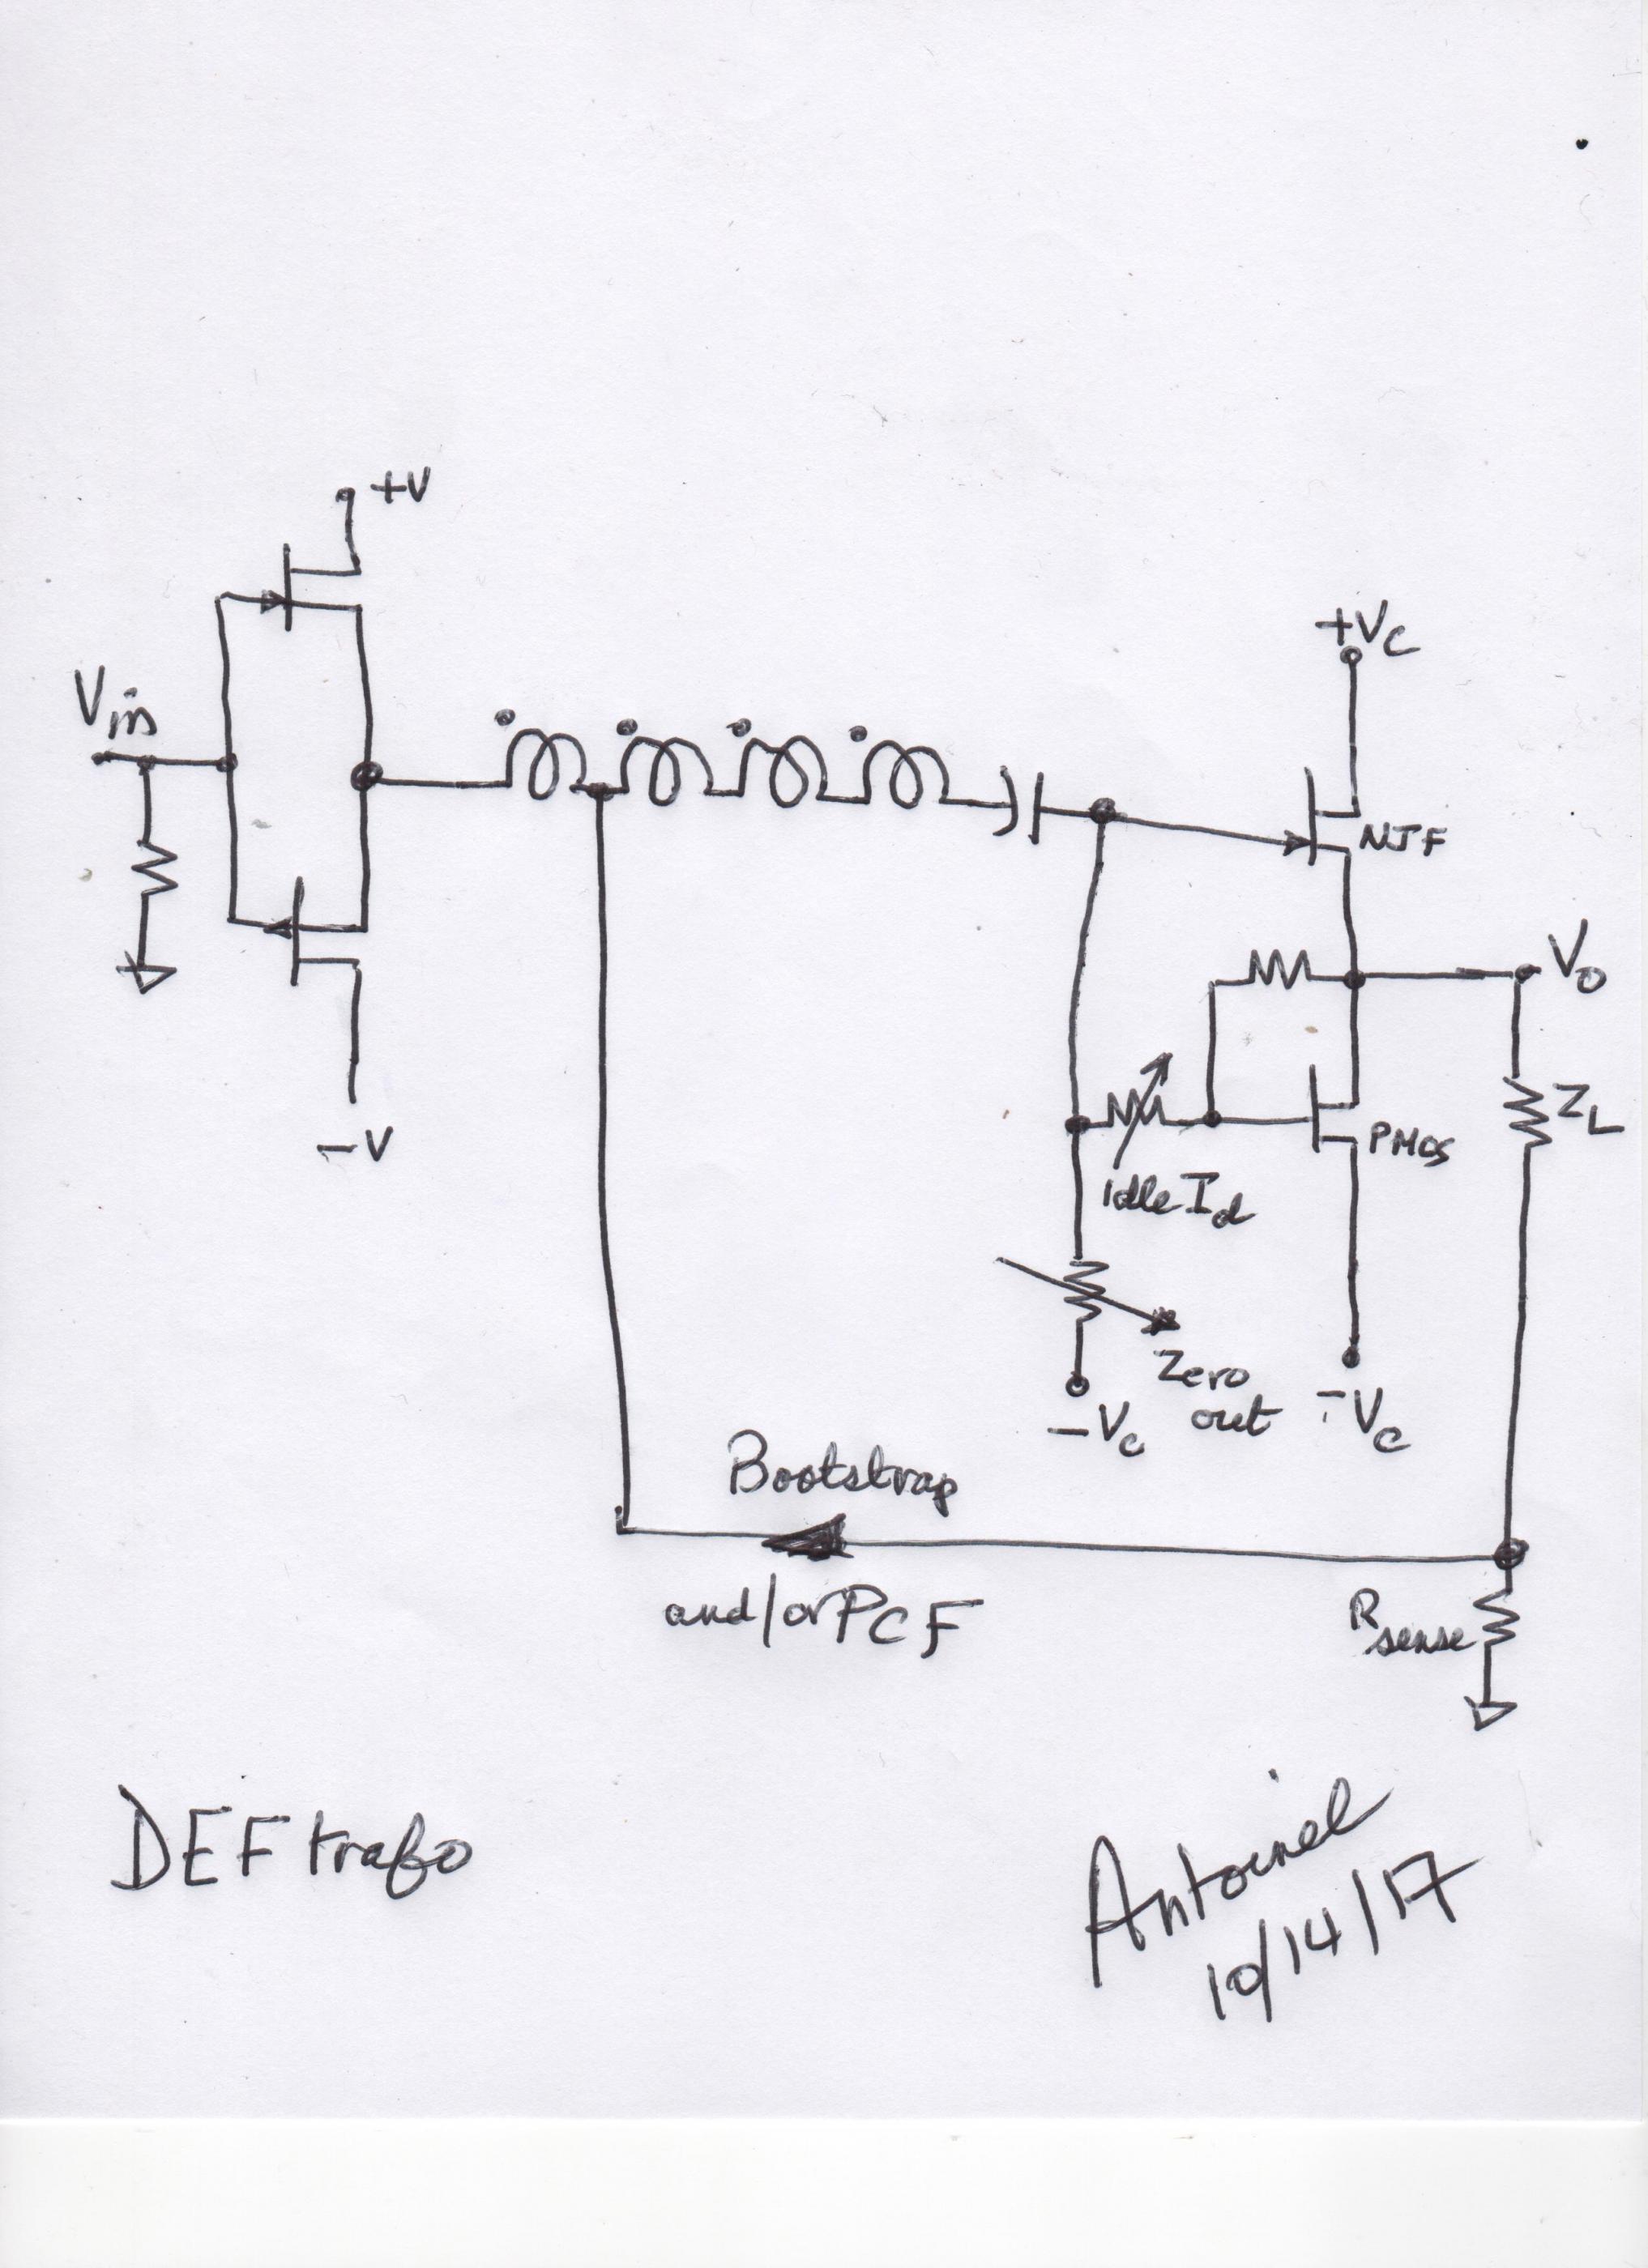 +V
+Vc
Vin
NJF
Vo
ZL
PMOS
idle Id
-V
Zero
out
-Vc
-Vc
Bootstrap
and/or PCF
R
sense
DEF trafo
Antoinel
10/14/17